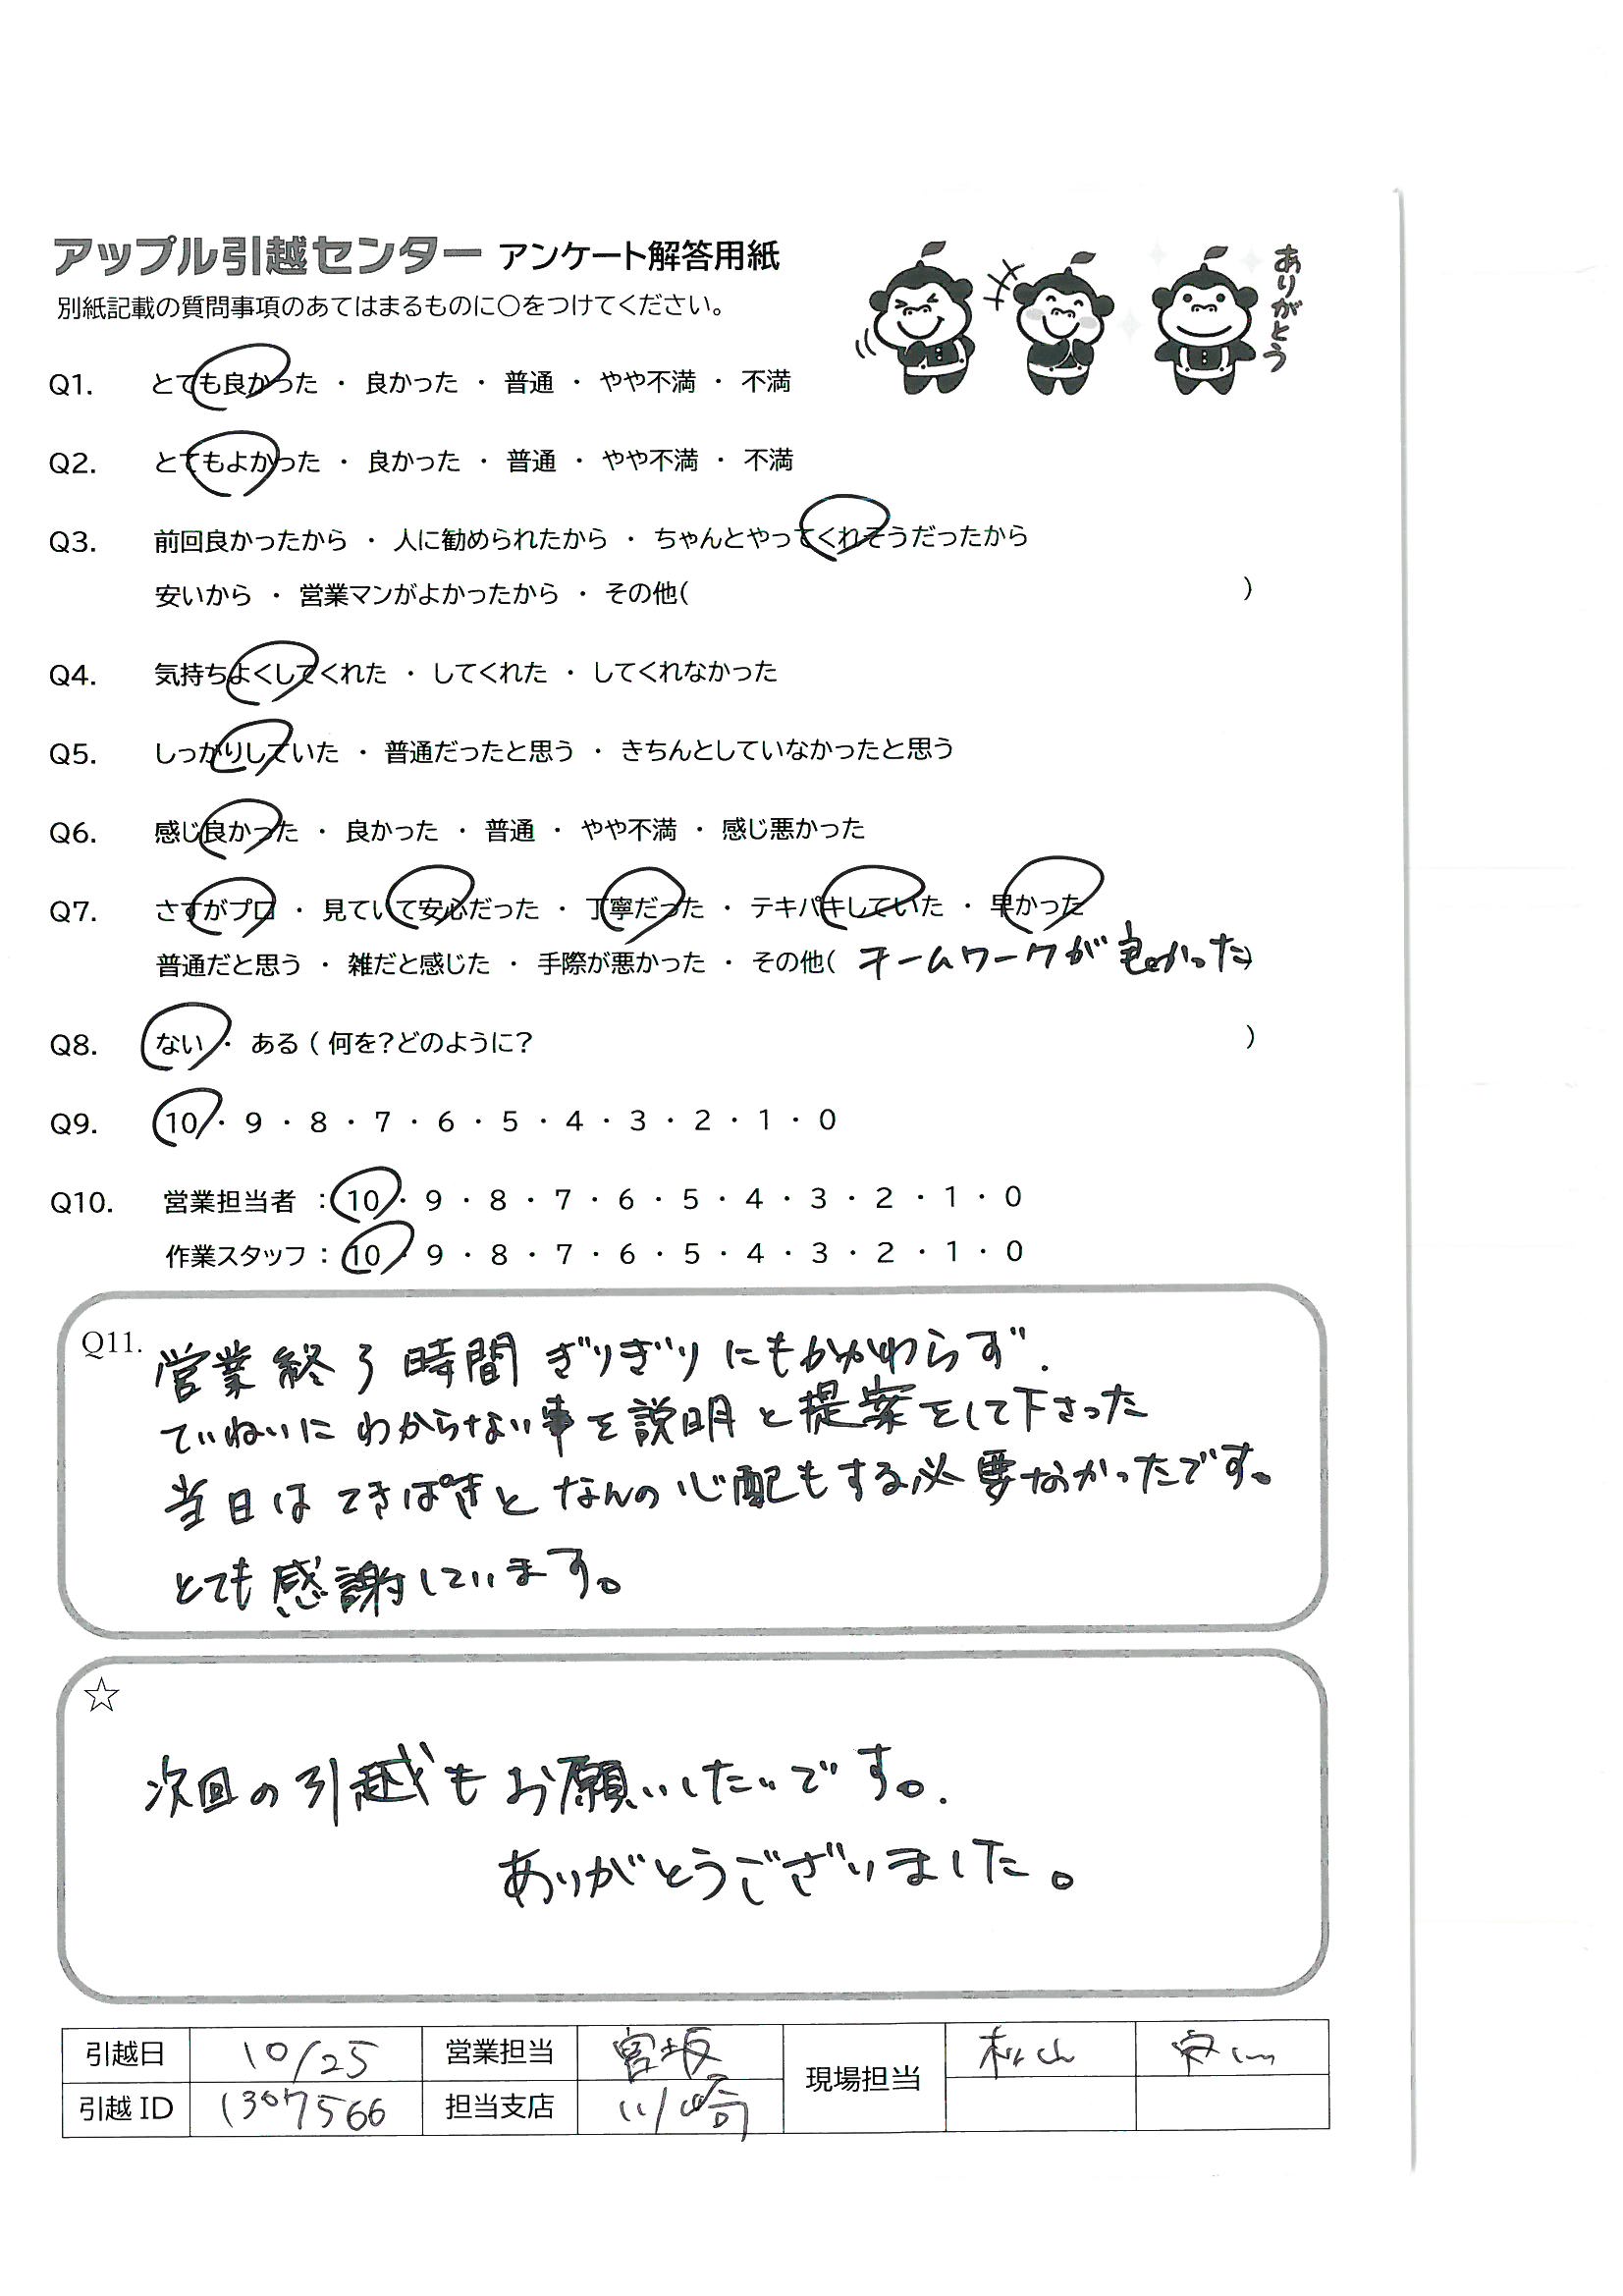 アップル引越センター アンケート解答用紙
別紙記載の質問事項のあてはまるものに○をつけてください。
ありがとう
Q1. とても良かった ・ 良かった ・ 普通 ・ やや不満 ・ 不満
Q2. とてもよかった ・ 良かった ・ 普通 ・ やや不満 ・ 不満
Q3. 前回良かったから ・ 人に勧められたから ・ ちゃんとやってくれそうだったから
安いから ・ 営業マンがよかったから ・ その他( )
Q4. 気持ちよくしてくれた ・ してくれた ・ してくれなかった
Q5. しっかりしていた ・ 普通だったと思う ・ きちんとしていなかったと思う
Q6. 感じ良かった ・ 良かった ・ 普通 ・ やや不満 ・ 感じ悪かった
Q7. さすがプロ ・ 見ていて安心だった ・ 丁寧だった ・ テキパキしていた ・ 早かった
普通だと思う ・ 雑だと感じた ・ 手際が悪かった ・ その他( チームワークが良かった)
Q8. ない ・ ある ( 何を?どのように? )
Q9. 10 ・ 9 ・ 8 ・ 7 ・ 6 ・ 5 ・ 4 ・ 3 ・ 2 ・ 1 ・ 0
Q10. 営業担当者 : 10 ・ 9 ・ 8 ・ 7 ・ 6 ・ 5 ・ 4 ・ 3 ・ 2 ・ 1 ・ 0
作業スタッフ : 10 ・ 9 ・ 8 ・ 7 ・ 6 ・ 5 ・ 4 ・ 3 ・ 2 ・ 1 ・ 0
Q11. 営業終了時間ぎりぎりにもかかわらず、
ていねいにわからない事を説明と提案をして下さった
当日はてきぱきとなんの心配もする必要なかったです。
とても感謝しています。
☆
次回の引越もお願いしたいです。
ありがとうございました。
引越日 10/25 営業担当 宮坂 現場担当 松山
引越ID 1307566 担当支店 川崎